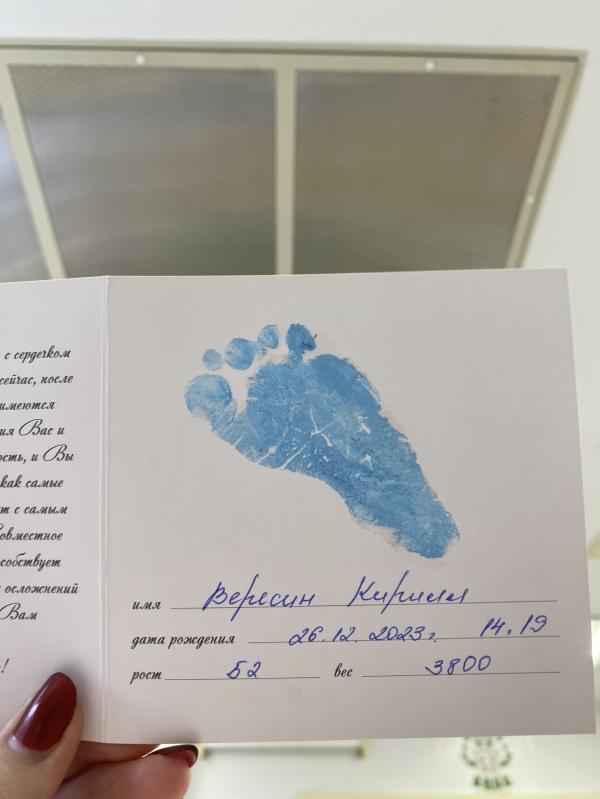 с сердечком
сейчас, после
имеются
ия Вас и
ость, и Вы
как самые
т с самым
Совместное
собствует
осложнений
Вам
!
имя Вересин Кирилл
дата рождения 26.12.2023г. 14.19
рост 52 вес 3800